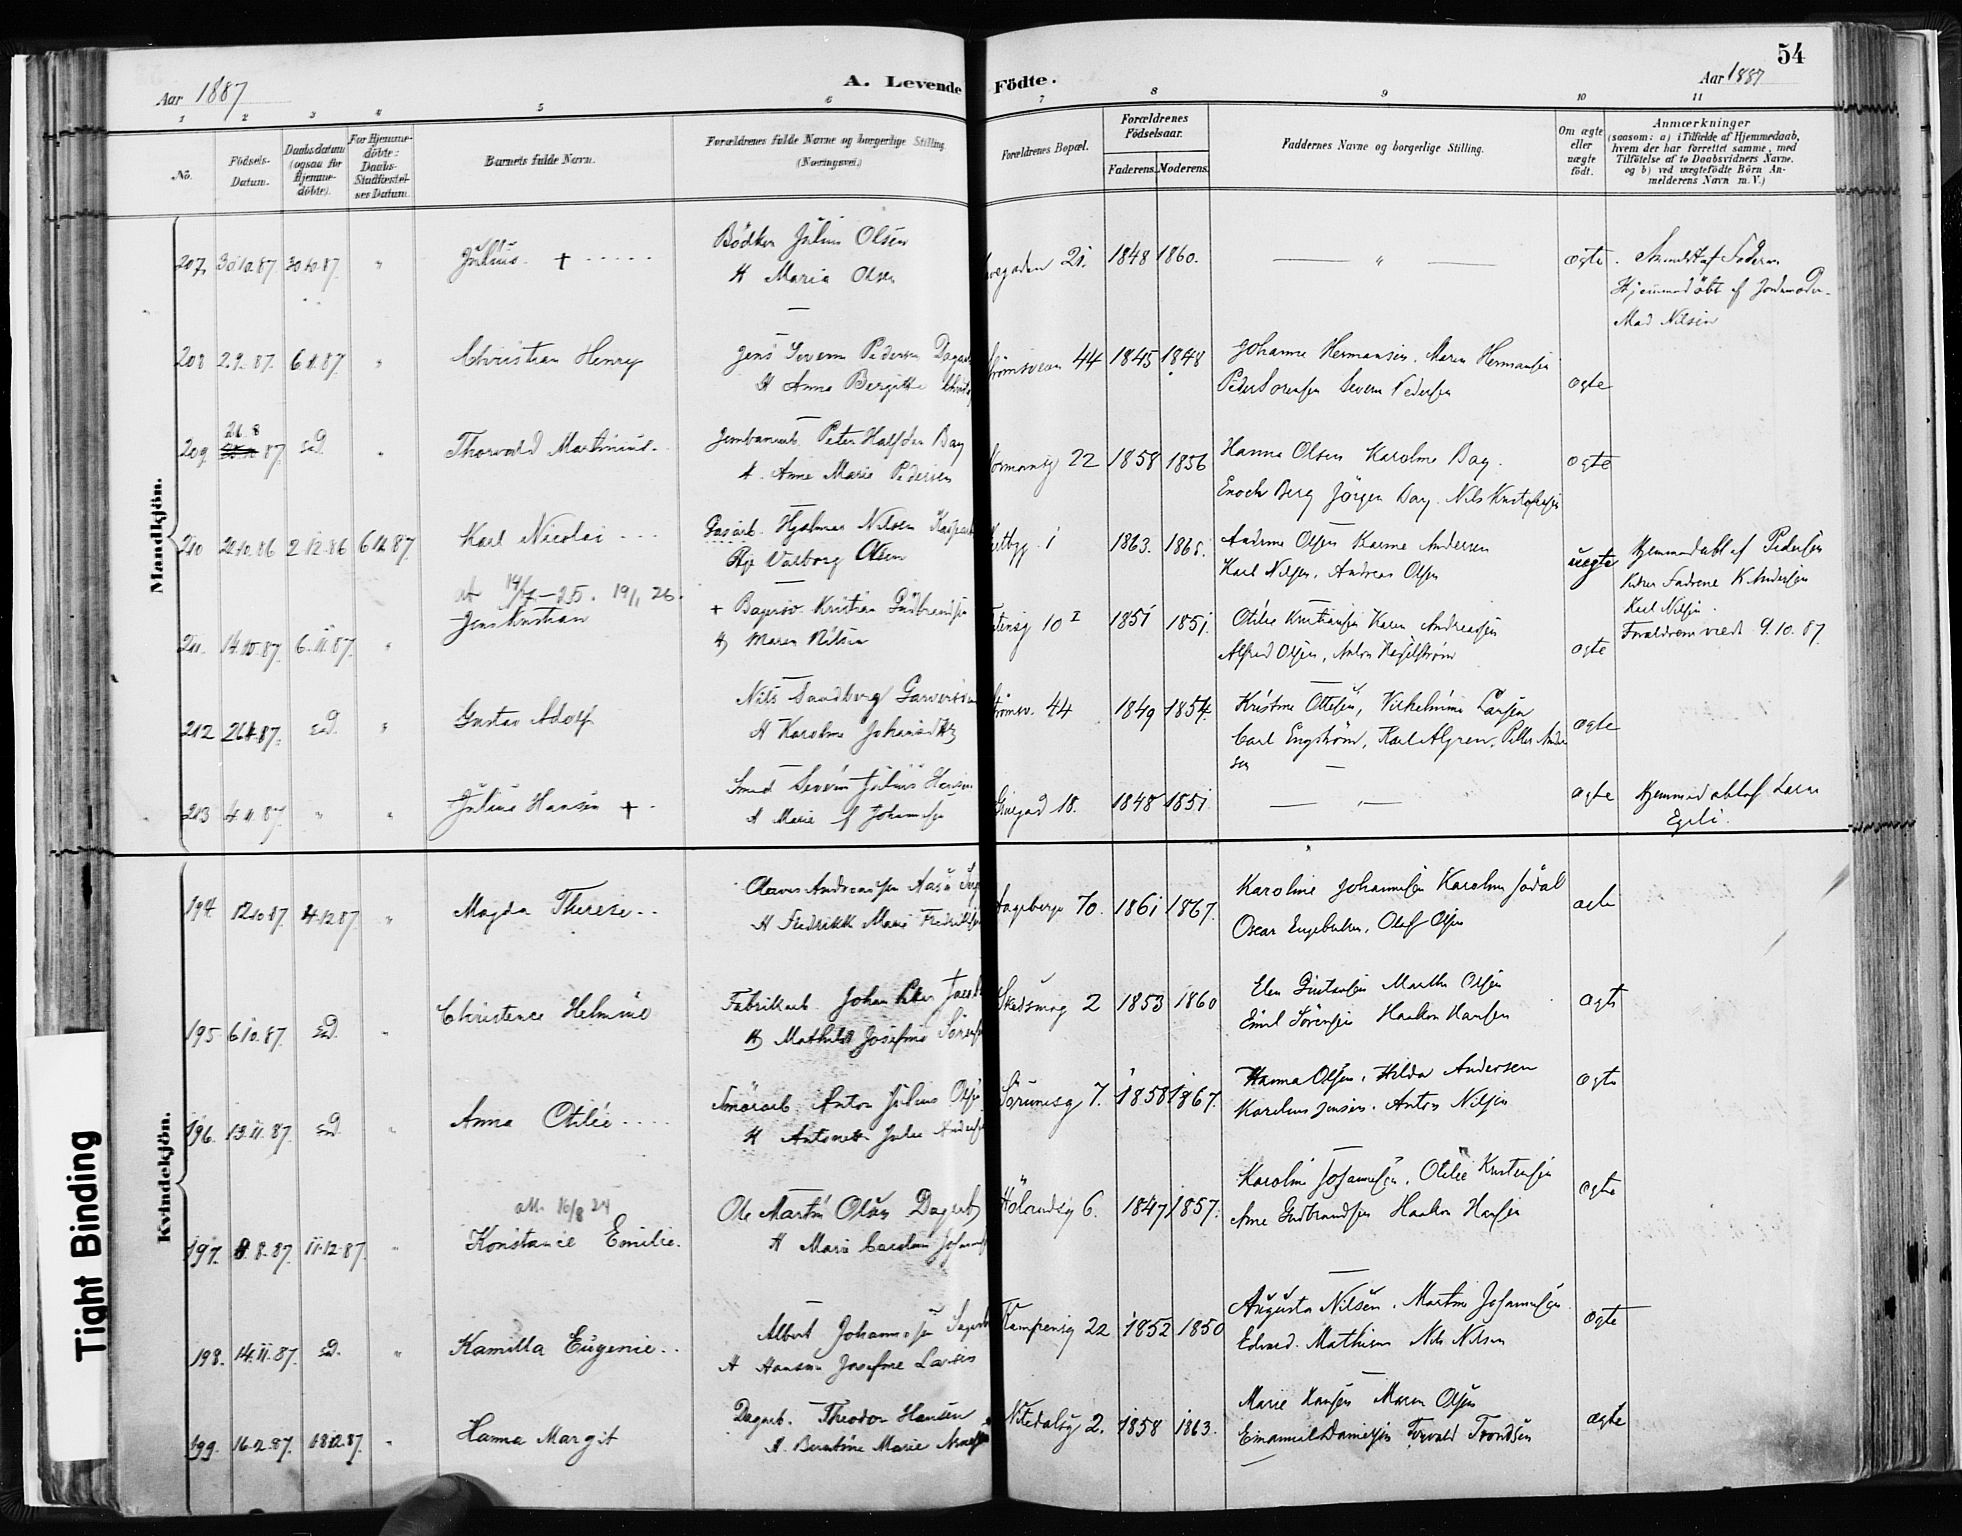 54
Aar 1887
A. Levende Födte.
Aar 1887
1 2 3 4 5 6 7 8 9 10 11
No.
Födsels-Datum.
Daabsdatum (ogsaa for Hjemme-döbte).
For Hjemme-döbte: Daabs-Stadfæstel-ses Datum.
Barnets fulde Navn.
Forældrenes fulde Navne og borgerlige Stilling
(Næringsvei.)
Forældrenes Bopæl.
Forældrenes Födselsaar.
Faderens. Moderens.
Faddernes Navne og borgerlige Stilling.
Om ægte eller uægte födt.
Anmærkninger
(saasom: a) i Tilfælde af Hjemmedaab,
hvem der har forrettet samme, med
Tilföielse af to Daabsvidners Navne,
og b) ved uægtefödte Börn An-
melderens Navn m. V.)
Mandkjön.
207. 30.10.87. 30.10.87. " Julius. +
Bödker Julius Olsen
H Maria Olsen
21. 1848 1860. " ægte.
Anmeldt af Faderen
Hjemmedöbt af Jordemoder
Mad Nilsen
208 2.9.87. 6.11.87. " Christian Henry
Jens Severin Pedersen
H Anna Bergitte
44 1845 1848
Johanne Hermansen. Maren Hermansen
Peder Sorensen Severin Pedersen
ægte
209. 21.8 87. sD. " Thorvald Martinius.
Jernbanearb. Peter Halfdan Bay
H. Anne Marie Pedersen
22 1858 1856
Hanna Olsen Karoline Bay.
Enoch Berg Jörgen Bay. Nils Kristofersen
ægte
210 20.10.86 2.12.86 6.11.87. Karl Nicolai
Gasarb. Hjalmar Nilsen
Pige Valborg Olsen
1 1863. 1865.
Andrine Olsen Karine Andersen
Karl Nilsen, Andreas Olsen
uægte
Hjemmedöbt af Pedersen
K Andersen
Karl Nilsen.
Forældrene viede 9.10.87.
att 14/7-25. 19/1 26.
211. 14.10.87. 6.11.87. " Jens Kristian
+ Bagersv. Kristian Gudbrandsen
H Maren Nilsen
10 I 1851 1851.
Otilie Kristiansen Karen Andreassen
Alfred Olsen, Anton Hesselström
ægte
212 26.1.87. sD. " Gustav Adolf
Nils Sandberg Garversv
H Karoline
44 1849 1854.
Kristine Ottesen, Vilhelmine Larsen
Carl Engström, Karl Algren, Petter Ander
sen
ægte
213 4.11.87. " " Julius Hansen +
Smed Severin Julius Hansen
H Marie
18. 1848 1851.
ægte
Hjemmedöbt af Lærer
Egeli.
Kvindekjön.
194. 12.10.87. 4.12.87 " Magda Therese
Andreassen
H Fredrikke Marie
70. 1861 1867.
Karoline Johannesen Karoline
Oscar Engebretsen, Olaf Olsen
ægte
195 6.10.87. sD. " Christence Helmine
Fabrikarb. Johan Peter
H Mathilde Josefine
Skedsmog 2 1853 1860
Elen Gustavsen Martha Olsen
Emil Sörensen Haakon Hansen
ægte
196. 13.11.87. sD. " Anna Otilie
Anton Julius Olsen
H Antonette Julie
Sörumsg 7. 1858 1867.
Hanna Olsen. Hilda Andersen
Karelius Jensen. Anton Nilsen
ægte
att. 16/8 24
197. 8.8.87. 11.12.87. " Konstance Emilie.
Ole Martin Olsen Dagarb
H Marie Caroline
Hölandsg 6. 1847 1857.
Karoline Johannesen, Otilie Kristensen
Arne Gudbrandsen Haakon Hansen
ægte
198. 14.11.87. sD. " Kamilla Eugenie
Albert Johannesen
H Hansine Josefine Larsen
Kampensg 22 1852 1850
Augusta Nilsen. Martine Johannesen
Edvard. Mathisen Nils Nilsen
ægte
199. 16.2.87. 18.12.87. " Hanna Margit
Dagarb. Theodor Hansen
H. Berntine Marie
Nitedalsg 2. 1858 1863.
Marie Hansen Maren Olsen
Emanuel Danielsen Torvald Trondsen
ægte
Tight Binding